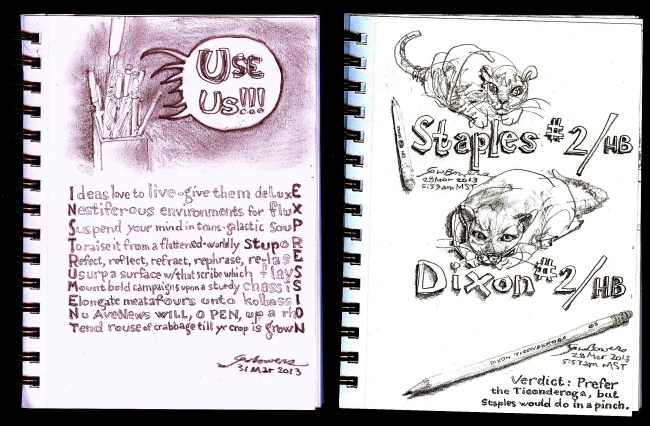 USE
US!!!
Ideas love to live - give them deLuxE
Nestiferous environments for fluX
Suspend your mind in trans-galactic SouP
To raise it from a flattened-worldly StupoR
Refect, reflect, refract, rephrase, re-lasE
Usurp a surface w/that scribe which flayS
Mount bold campaigns upon a sturdy chassiS
Elongate meatafours unto kolbassI
Nu AveNews WILL, O PEN, up a rhO
Tend rouse of crabbage till yr crop is growN
GWBowers
31 Mar 2013
Staples #2/HB
GWBowers
29 Mar 2013
5:39am MST
Dixon #2/HB
DIXON TICONDEROGA
GWBowers
29 Mar 2013
5:57am MST
Verdict: Prefer
the Ticonderoga, but
Staples would do in a pinch.